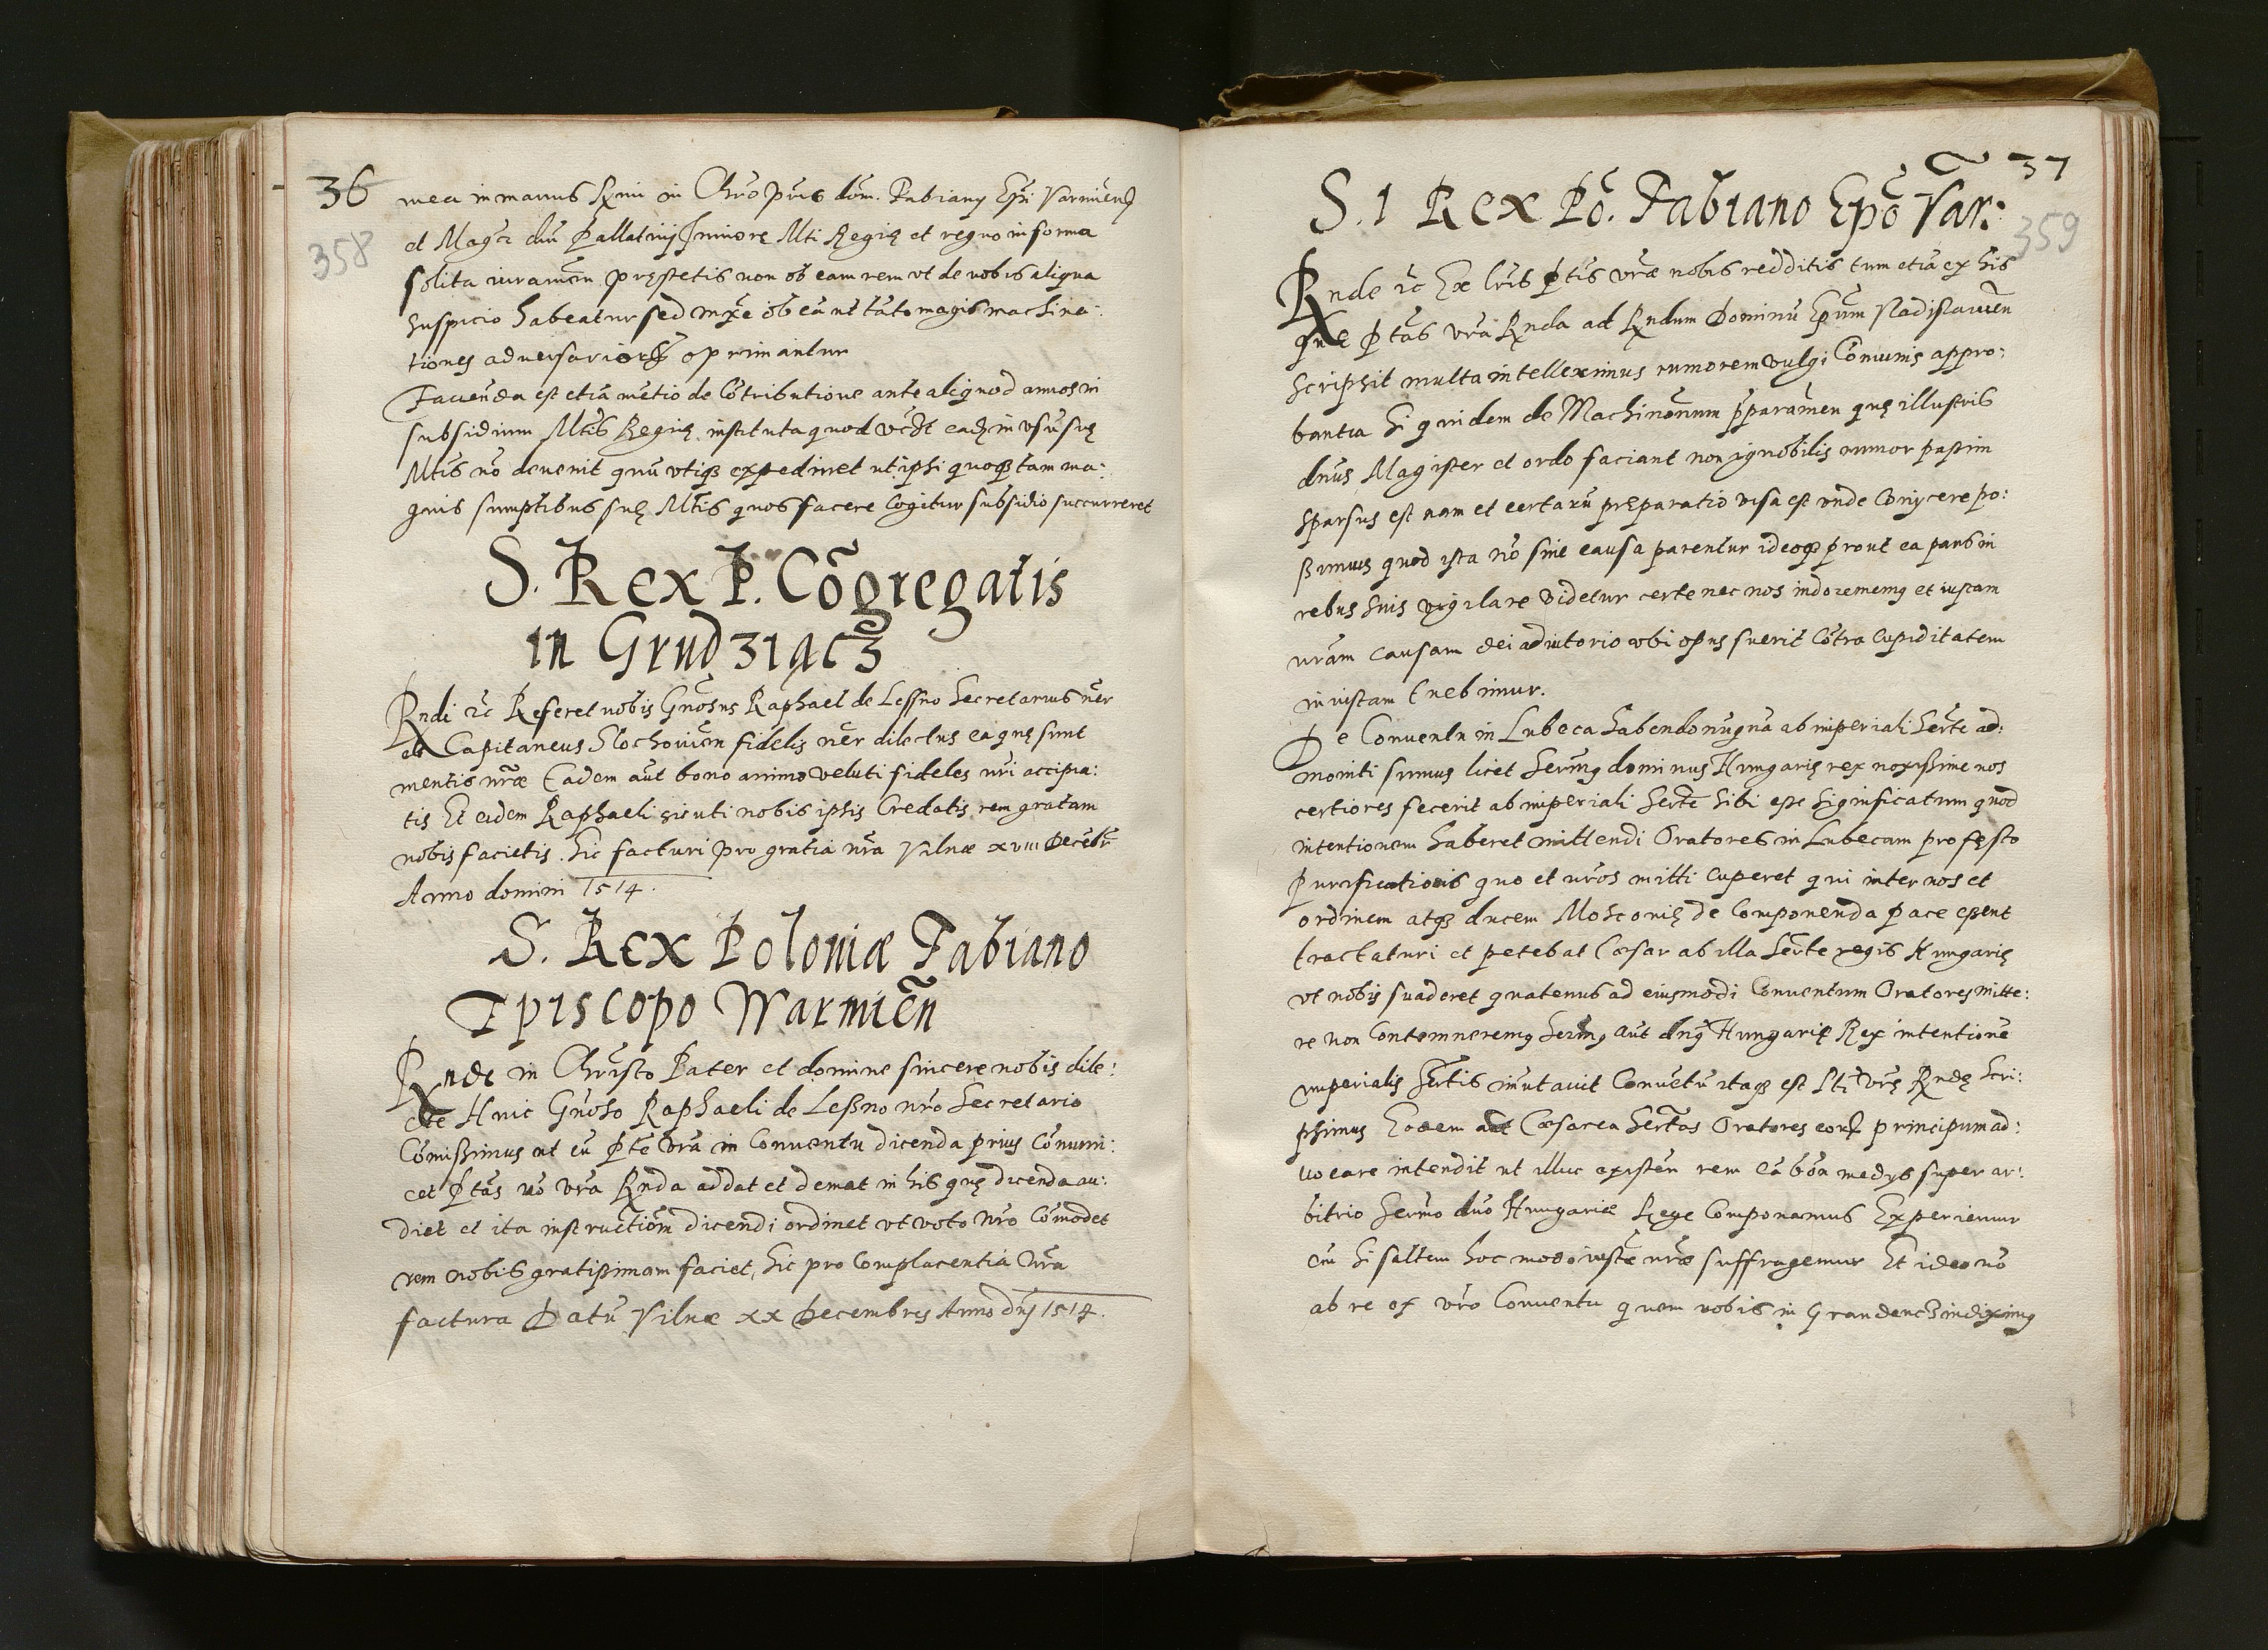 36
358
mea in manus Rmi in Chro pris dom. Fabiany Epi Varmien
et Magci dni Pallatiny Iuniore Mti Regię et regno in forma
solita iuramen. pręstetis non ob eam rem vt de vobis aliqua
suspicio habeatur sed mxe ob eā ut tāto magis machina:
tiones adversariorȝ opprimantur
Facienda est etiā mētio de Cōtributione ante aliquod annos in
subsidium Mtis Regię instituta quod vꝫ eadȝ in vsū suę
Mtis nō devenit quū vtiqȝ expediret ut ipsi quoqȝ tam ma:
gnis sumptibus suę Mtis quos facere Cogitur subsidio succurreret
S. Rex P. Cōgregatis
in Grudziącz
Rndi ac Referet nobis Gnosus Raphael de Lessno Secretarius nēr
et Capitaneus Slochovien fidelis nēr dilectus ea quę sunt
mentis nrāe Eadem aūt bono animo veluti fideles nri accipia:
tis Et eidem Raphaeli sicuti nobis ipsis Credatis rem gratam
nobis facietis. Sic facturi pro gratia nrā Vilnæ xviii Decebr
Anno domini 1514.
S. Rex Poloniæ Fabiano
Episcopo Warmień
Rnde in Christo Pater et domine sincere nobis dile:
cte Huic Gnoso Raphaeli de Lessno nrō Secretario
Cōmissimus ut cū Pte Vrā in Conventu dicenda prius Cōmuni:
cet Ptas vō vrā Rnda addat et demat in his quę dicenda au:
diet et ita instructiōm dicendi ordinet vt voto nrō Cōmodet
rem nobis gratissimam faciet, Sic pro Complacentia Nrā
factura Datū Vilnæ xx Decembres Anno dnj 1514.
37
359
S. I Rex Pō. Fabiano Epō Var:
Rnde ac Ex lrīs Ptis vrāe nobis redditis tum etiā ex his
que Ptas vrā Rnda ad Rndum Dominū Epum Vladislauien
scripsit multa intelleximus rumorem vulgi Cōmunis appro:
bantia Si quidem de Machinorum pparamen quę illustris
dnūs Magister et ordo faciant non ignobilis rumor passim
sparsus est nam et certarū pręparatio visa est vnde Conijcere po:
ssimus quod ista nō sine causa parentur ideoqȝ prout ea pars in
rebus suis vigilare videtur certe nec nos indormiemus et iustam
nrām causam dei adiutorio vbi opus fuerit Cōtra Cupiditatem
iniustam tuebimur.
De Conventu in Lubeca habendo nūquā ab imperiali Serte ad:
moniti sumus licet Serīnus dominus Hungarię rex novissime nos
certiores fecerit ab imperiali Serte Sibi esse Significatum quod
intentionem haberet mittendi Oratores in Lubecam pro fęsto
Purificationis quo et nros mitti cuperet qui inter nos et
ordinem atqȝ ducem Mosconię de Componenda pace essent
tractaturi et petebat Cæsar ab illa Serte regis Hungarię
vt nobis suaderet quatenus ad eiusmodi Conventum Oratores mitte:
re non Contemneremus Serīnus aūt dnūs Hungarię Rex intentione
imperialis Sertis imutavit Convētū itaqȝ est Pti vrę Rndę scri:
psimus Eadem aūt Cæsarea Sertas Oratores eorȝ principum ad:
vocare intendit ut illuc existen rem cū bōn medys super ar:
bitrio Sermo dno Hungariæ Rege Componamus Experiemur
cū si saltem hoc modo iustæ nrāe suffragemur Et ideo nō
ab re of vrō Conventu quem vobis in Graudencz indiximus